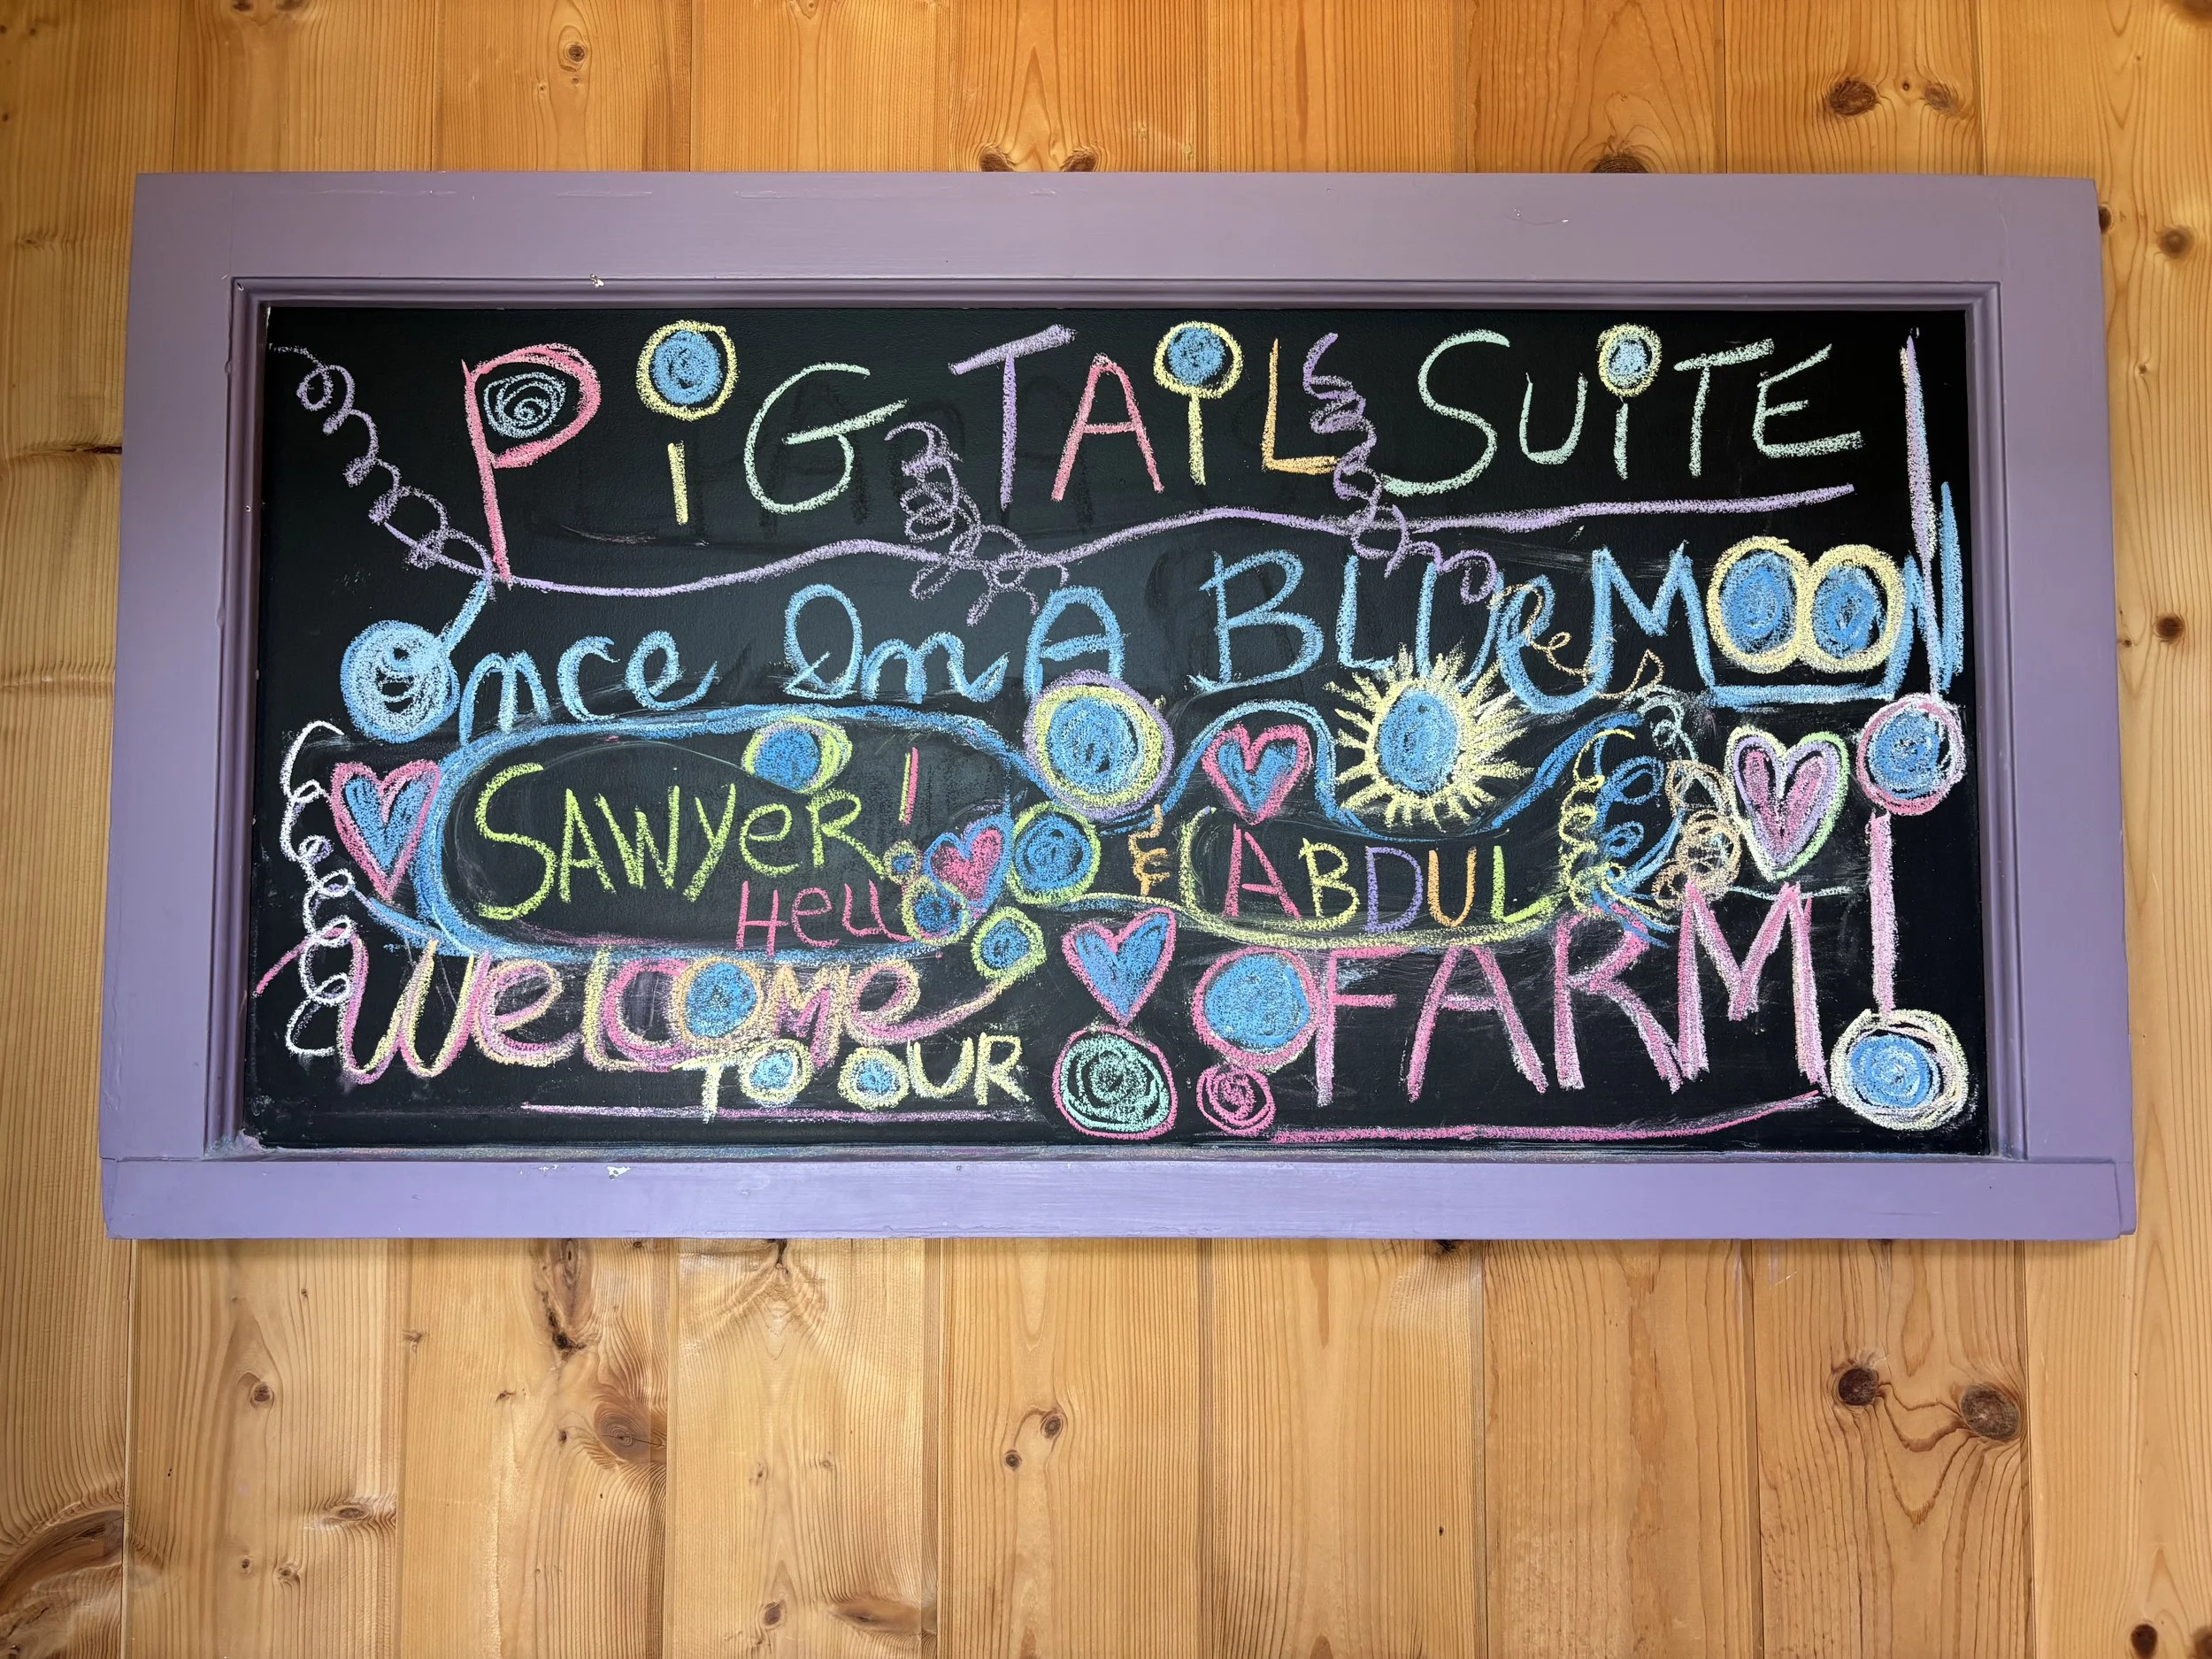 PiG TAiL SUiTE!
Once In A BLUe MOON!
SAWYeR!
Hello
& ABDUL
WeLCOMe
TO OUR
FARM!